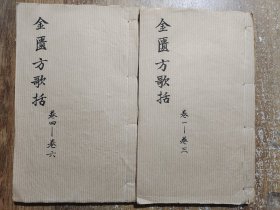 金匱方歌括
卷一—卷三
金匱方歌括
卷四—卷六